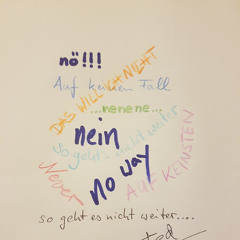 nö!!!
DAS WILL ICH NICHT
Auf keinen Fall
...nenene...
nein
so geht's nicht weiter
Never
no way
AUF KEINSTEN
so geht es nicht weiter....